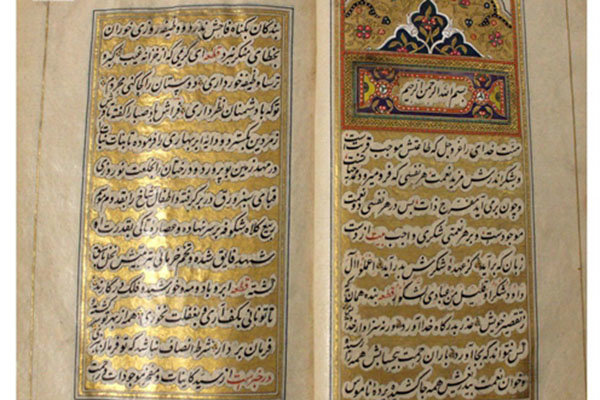 بسم الله الرحمن الرحیم
منت خدای را عز و جل که طاعتش موجب قربت است
و بشکر اندرش مزید نعمت هر نفسی که فرو میرود ممد حیات
و چون بر می آید مفرح ذات پس در هر نفسی دو نعمت
موجودست و بر هر نعمتی شکری واجب بیت از دست و
زبان که برآید کز عهده شکرش بدر آید اعملوا آل
داود شکرا و قلیل من عبادی الشکور قطعه بنده همان که
ز تقصیر خویش عذر بدرگاه خدا آورد ورنه سزاوار
کس نتواند که بجا آورد باران رحمت بیحسابش همه را
و خوان نعمت بیدریغش همه جا کشیده پرده ناموس
بندگان بگناه فاحش ندرد و وظیفه روزی خوران
بخطای منکر نبرد قطعه ای کریمی که از خزانه غیب گبر و
ترسا وظیفه خور داری دوستان را کجا کنی محروم
تو که با دشمنان نظر داری فراش باد صبا را گفته تا فرش
زمردین بگسترد و دایه ابر بهاری را فرموده تا بنات نبات
در مهد زمین بپرورد و درختان را بخلعت نوروزی
قبای سبز ورق در بر گرفته و اطفال شاخ را بقدوم موسم
ربیع کلاه شکوفه بر سر نهاده و عصاره تاکی بقدرت او
شهد فایق شده و تخم خرمائی بتربیتش نخل باسق
گشته قطعه ابر و باد و مه و خورشید و فلک در کارند
تا تو نانی بکف آری و بغفلت نخوری همه از بهر تو سرگشته و
فرمان بردار شرط انصاف نباشد که تو فرمان نبری
در خبرست از سید کاینات و مفخر موجودات و رحمت